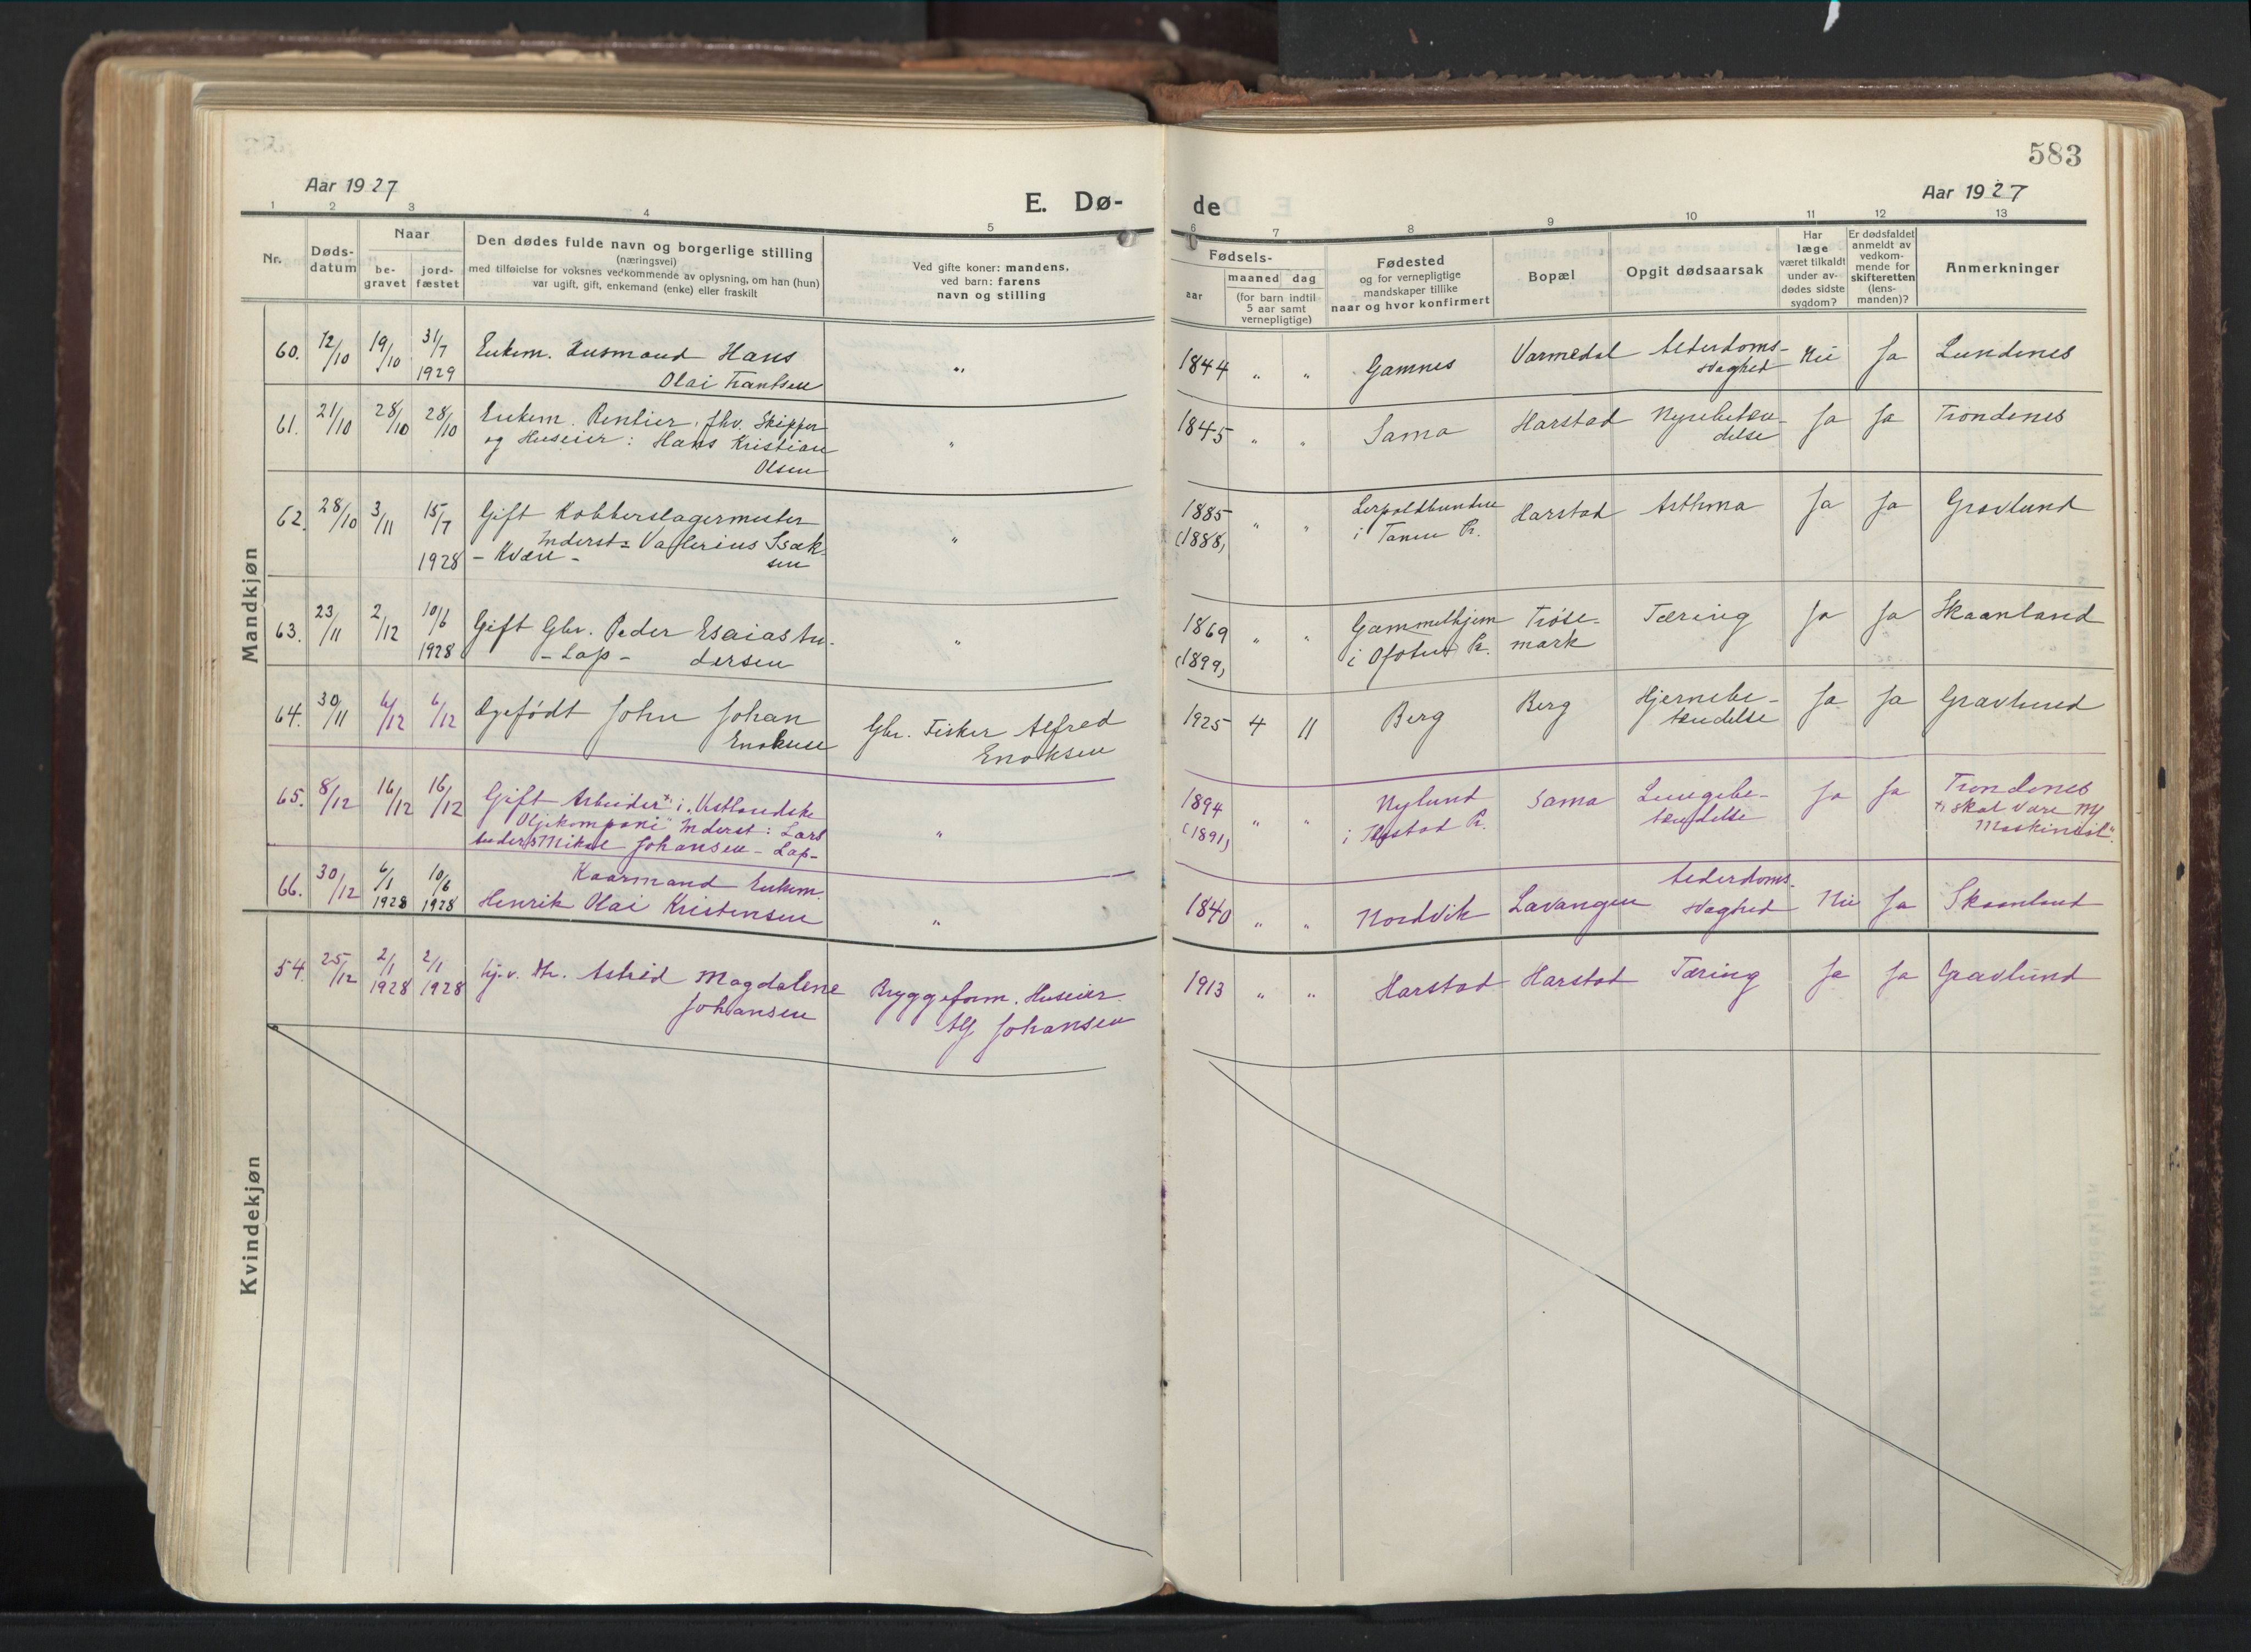 583
Aar 1927
E. Dø-
de
Aar 1927
1 2 3 4 5 6 7 8 9 10 11 12 13
Nr.
Døds-
datum
Naar
be-
gravet
jord-
fæstet
Den dødes fulde navn og borgerlige stilling
(næringsvei)
med tilføielse for voksnes vedkommende av oplysning, om han (hun)
var ugift, gift, enkemand (enke) eller fraskilt
Ved gifte koner: mandens,
ved barn: farens
navn og stilling
Fødsels-
aar
maaned dag
(for barn indtil
5 aar samt
vernepligtige)
Fødested
og for vernepligtige
mandskaper tillike
naar og hvor konfirmert
Bopæl
Opgit dødsaarsak
Har
læge
været tilkaldt
under av-
dødes sidste
sygdom?
Er dødsfaldet
anmeldt av
vedkom-
mende for
skifteretten
(lens-
manden)?
Anmerkninger
Mandkjøn
60. 12/10 19/10 31/7 1929 Enkem. Husmand Hans
Olai Frantsen
" 1844 " " Gamnes Varmedal Alderdoms-
svaghed Nei Ja Lundenes
61. 21/10 28/10 28/10 Enkem. Rentier, fhv. Skipper
og Huseier: Hans Kristian
Olsen
" 1845 " " Sama Harstad Nyrebetæn-
delse Ja Ja Trondenes
62. 28/10 3/11 15/7 1928 Gift Kobberslagermester
Inderst: Valerius Isak-
- Kvæn - sen
" 1885 (1888) " "
i Tanen Pr. Harstad Asthma Ja Ja Gravlund
63. 23/11 2/12 10/6 1928 Gift Gbr. Peder Esaias An-
- Lap - dersen
" 1869 (1899) " " Gammelhjem
i Ofoten Pr. Trøse-
mark Tæring Ja Ja Skaanland
64. 30/11 6/12 6/12 Ægefödt John Johan
Enoksen
Gbr. Fisker Alfred
Enoksen
1925 4 11 Berg Berg Hjernebe-
tændelse Ja Ja Gravlund
65. 8/12 16/12 16/12 Gift Arbeider + i "Vestlandske
Oljekompani" Inderst: Lars
Anders Mikal Johansen - Lap -
" 1894 (1891) " " Nylund
i Pr. Sama Lungebe-
tændelse Ja Ja Trondenes
+) skal være "Ny
Maskinist".
66. 30/12 6/1 1928 10/6 1928 Kaarmand Enkem.
Henrik Olai Kristensen
" 1840 " " Nordvik Lavangen Alderdoms-
svaghed Nei Ja Skaanland
Kvindekjøn
54. 25/12 2/1 1928 2/1 1928 Hj.v. Dtr. Astrid Magdalene
Johansen
Bryggeform. Huseier.
Alf Johansen
1913 " " Harstad Harstad Tæring Ja Ja Gravlund